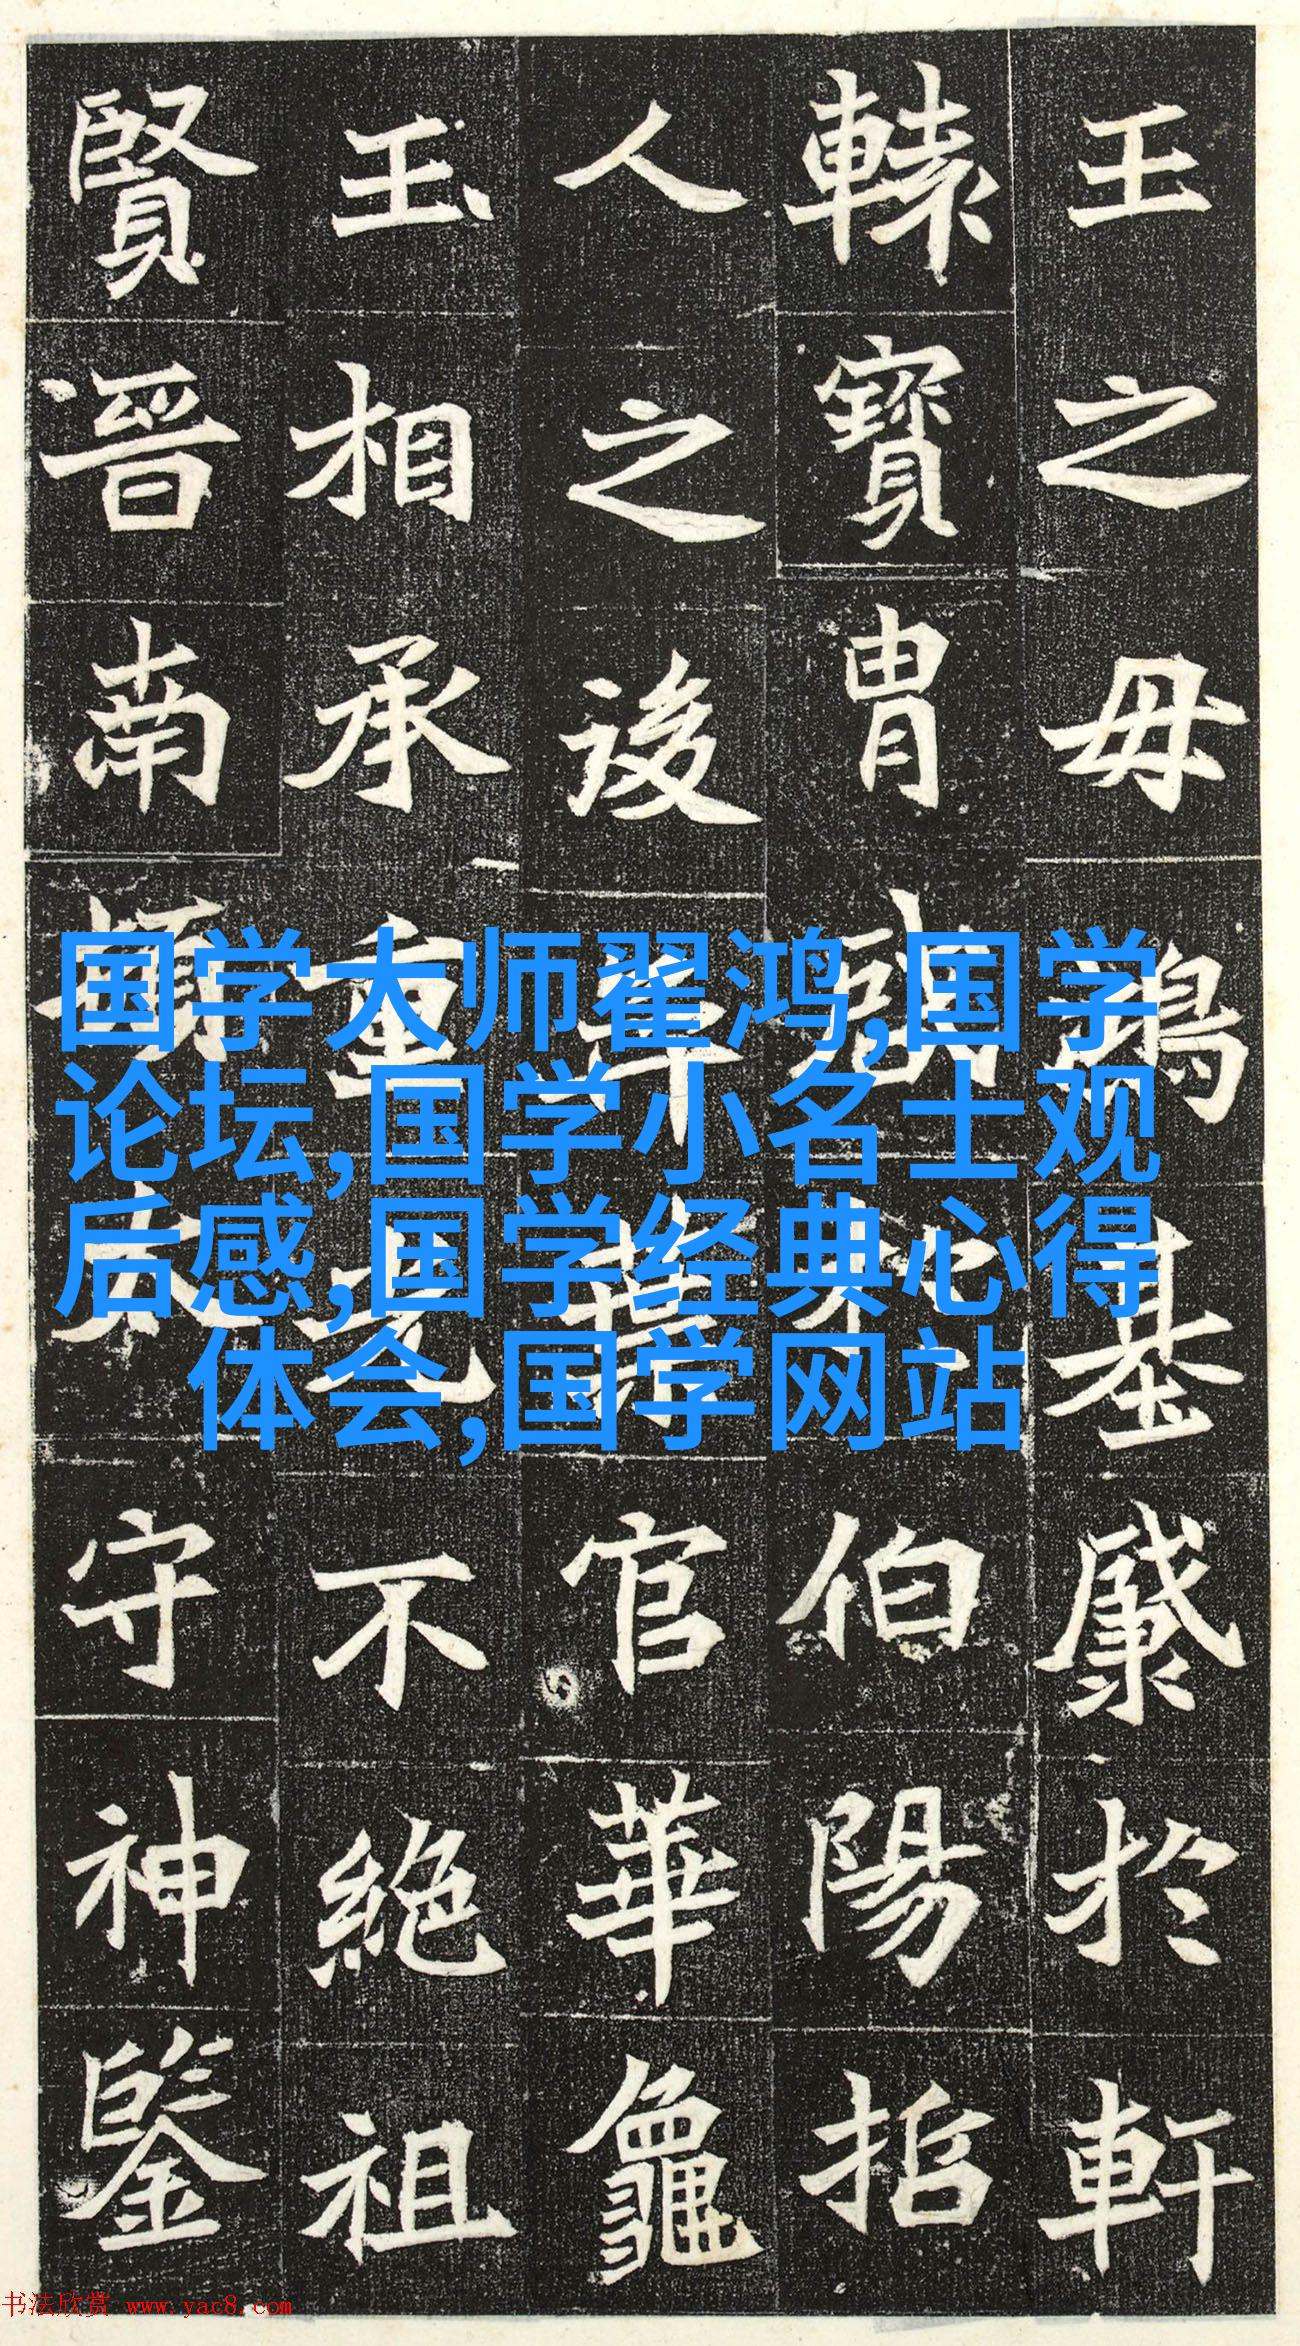 王之毋基於軒
轅寶胄伯陽
人之後官華龕
玉相承重光不絕祖
賢晉南頓太守神鑒
国学大师翟鸿,国学
论坛,国学小名士观
后感,国学经典心得
体会,国学网站
书法欣赏 www.yac8.com